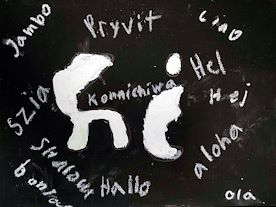 Jambo
Pryvit
Ciao
hi
Konnichiwa
Hel
Hej
Szia
Shalom
Hallo
aloha
olá